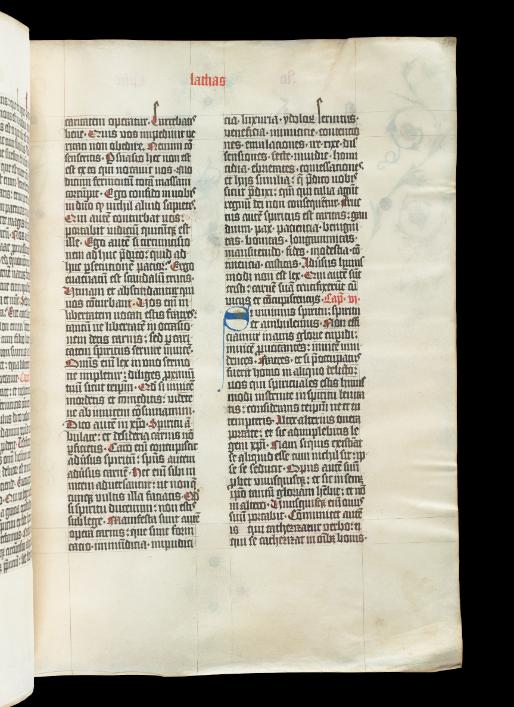 lathas
caritatem operatur. Currebatis
bene. Quis vos impedivit ve
ritati non obedire. Nemini con
senseritis. Persuasio hec non est
ex eo qui vocavit vos. Mo
dicum fermentum totam massam
corrumpit. Ego confido in vobis
in dno qd nichil aliud sapietis.
Qui autē conturbat vos:
portabit iudiciū quicūqz est
ille. Ego autē si circumcisio
nem adhuc pdico: quid ad
huc psecutionē patior. Ergo
evacuatū est scandalū crucis.
Utinam et abscindantur qui
vos cōturbant. Vos eī in
libertatem vocati estis fratres:
in occasio
nem detis carnis: sed per cari
tatem spiritus servite invicē.
Omnis eī lex in uno sermo
ne impletur: diliges proximū
tuū sicut teipm. Qd si invicē
mordetis et comeditis: videte
ne ab invicem cōsumamini.
Dico autē in xpo. Spiritu ā
bulate: et desideria carnis nō
pficietis. Caro eī concupiscit
adversus spiritū: spūs autem
adversus carnē. Hec eī sibi in
vicem adversantur: ut non q
cūqz vultis illa faciatis. Qd
si spiritu ducimini: non estis
sub lege. Manifesta sunt autē
opera carnis: que sunt forni
catio. immūdicia. impudici
cia. luxuria. ydoloꝝ servitus.
veneficia. inimicicie. contencio
nes. emulaciones. ire. rixe. dis
sensiones. secte. invidie. homi
cidia. ebrietates. comessaciones
et hiis similia: q pdico vobis
sicut pdixi: qm qui talia agūt
regnū dei non consequent. Fruc
tus autē spiritus est caritas: gau
dium. pax. paciencia. benigni
tas. bonitas. longanimitas.
mansuetudo. fides. modestia. cō
tinencia. castitas. Adversus huius
modi non est lex. Qui autē sūt
xpi: carnē suā crucifixerūt cū
viciis et cōcupiscenciis. Cap. vi.
Si vivimus spiritu: spiritu
et ambulemus. Non effi
ciamur inanis glorie cupidi:
invicē provocantes: invicē invi
dentes. Fratres. et si pocupatus
fuerit homo in aliquo delicto:
vos qui spirituales estis huius
modi instruite in spiritu lenita
tis: considerans teipm ne et tu
tempteris. Alter alterius onera
portate: et sic adimplebitis le
gem xpi. Nam si quis existimat
se aliquid esse cum nichil sit: ip
se se seducit. Opus autē suū
pbet unusquisqz: et sic in semet
ipo tantū gloriam hēbit: et nō
in altero. Unusquisqz eī onus
suū portabit. Cōmunicet autē
is qui cathezizatur verbo: ei
qui se cathezizat in oībz bonis.